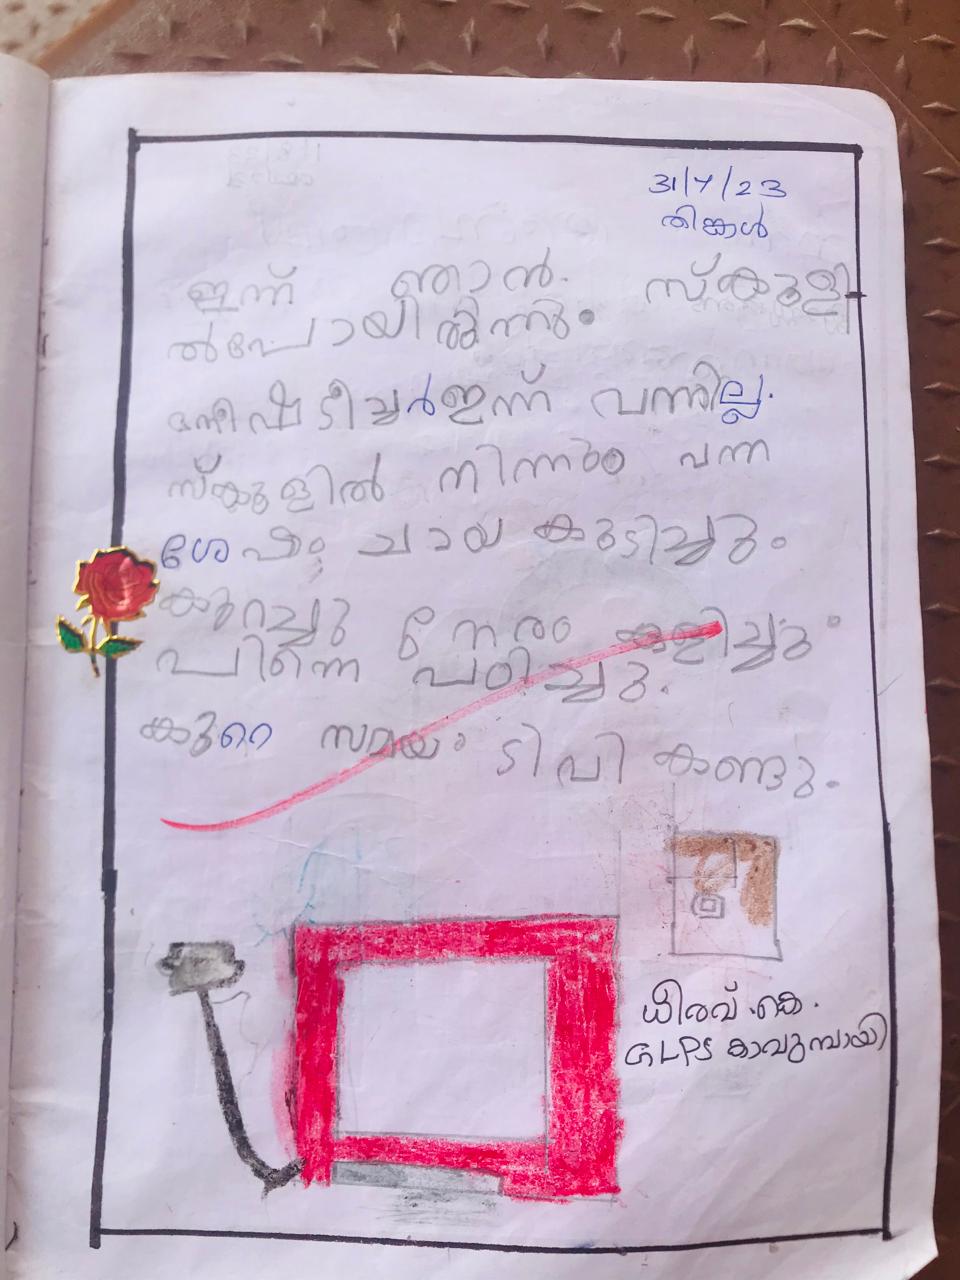 31/7/23
തിങ്കൾ
ഇന്ന് ഞാൻ. സ്കൂളി
ൽപോയിരുന്നു.
ടീച്ചർഇന്ന് വന്നില്ല.
സ്കൂളിൽ നിന്നും വന്ന
ശേഷം ചായ കുടിച്ചു.
കുറച്ചു നേരം കളിച്ചു.
പിന്നെ പഠിച്ചു.
കുറെ സമയം ടിവി കണ്ടു.
ധീരവ്.കെ.
GLPS കാവുമ്പായി